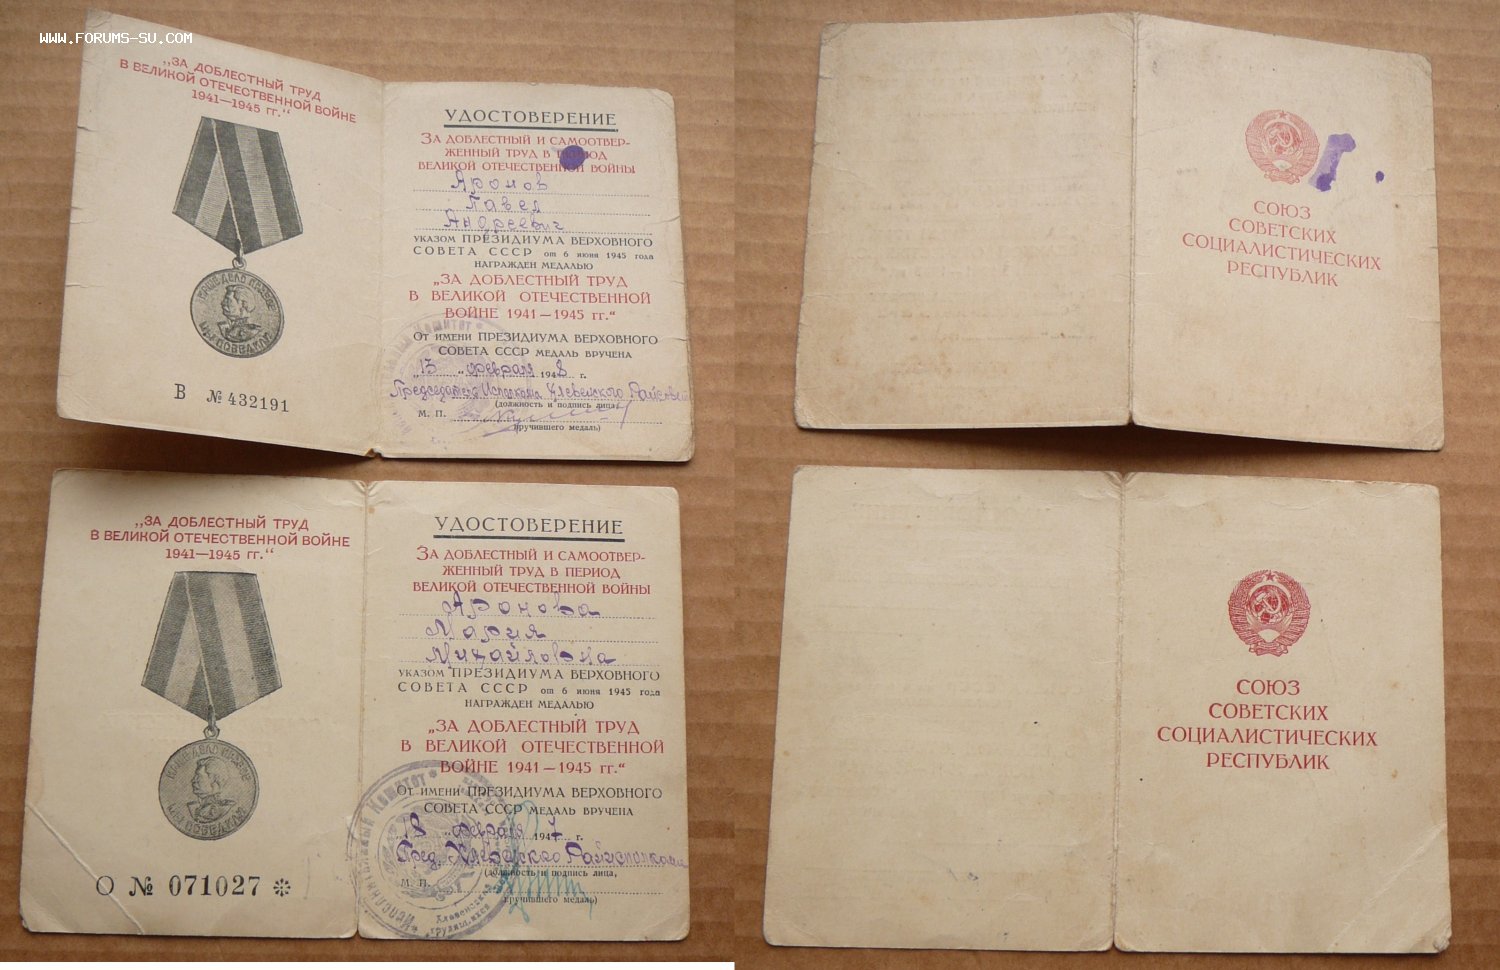 www.FORUMS-SU.com
„ЗА ДОБЛЕСТНЫЙ ТРУД
В ВЕЛИКОЙ ОТЕЧЕСТВЕННОЙ ВОЙНЕ
1941—1945 гг.“
НАШЕ ДЕЛО ПРАВОЕ
МЫ ПОБЕДИЛИ
В № 432191
УДОСТОВЕРЕНИЕ
ЗА ДОБЛЕСТНЫЙ И САМООТВЕР-
ЖЕННЫЙ ТРУД В ПЕРИОД
ВЕЛИКОЙ ОТЕЧЕСТВЕННОЙ ВОЙНЫ
Аронов
Павел
Андреевич
УКАЗОМ ПРЕЗИДИУМА ВЕРХОВНОГО
СОВЕТА СССР от 6 июня 1945 года
НАГРАЖДЕН МЕДАЛЬЮ
„ЗА ДОБЛЕСТНЫЙ ТРУД
В ВЕЛИКОЙ ОТЕЧЕСТВЕННОЙ
ВОЙНЕ 1941—1945 гг.“
ОТ ИМЕНИ ПРЕЗИДИУМА ВЕРХОВНОГО
СОВЕТА СССР МЕДАЛЬ ВРУЧЕНА
„13 „ февраля 1948 г.
Председатель Исполкома Хлевенского Райсовета
(должность и подпись лица,
М. П.
вручившего медаль)
СОЮЗ
СОВЕТСКИХ
СОЦИАЛИСТИЧЕСКИХ
РЕСПУБЛИК
„ЗА ДОБЛЕСТНЫЙ ТРУД
В ВЕЛИКОЙ ОТЕЧЕСТВЕННОЙ ВОЙНЕ
1941—1945 гг.“
НАШЕ ДЕЛО ПРАВОЕ
МЫ ПОБЕДИЛИ
О № 071027 ❊
УДОСТОВЕРЕНИЕ
ЗА ДОБЛЕСТНЫЙ И САМООТВЕР-
ЖЕННЫЙ ТРУД В ПЕРИОД
ВЕЛИКОЙ ОТЕЧЕСТВЕННОЙ ВОЙНЫ
Аронова
Мария
Михайловна
УКАЗОМ ПРЕЗИДИУМА ВЕРХОВНОГО
СОВЕТА СССР от 6 июня 1945 года
НАГРАЖДЕН МЕДАЛЬЮ
„ЗА ДОБЛЕСТНЫЙ ТРУД
В ВЕЛИКОЙ ОТЕЧЕСТВЕННОЙ
ВОЙНЕ 1941—1945 гг.“
ОТ ИМЕНИ ПРЕЗИДИУМА ВЕРХОВНОГО
СОВЕТА СССР МЕДАЛЬ ВРУЧЕНА
„18 „ февраля 1947 г.
Пред. Хлевенского Райисполкома
(должность и подпись лица,
М. П.
вручившего медаль)
Исполнительный Комитет
СОЮЗ
СОВЕТСКИХ
СОЦИАЛИСТИЧЕСКИХ
РЕСПУБЛИК